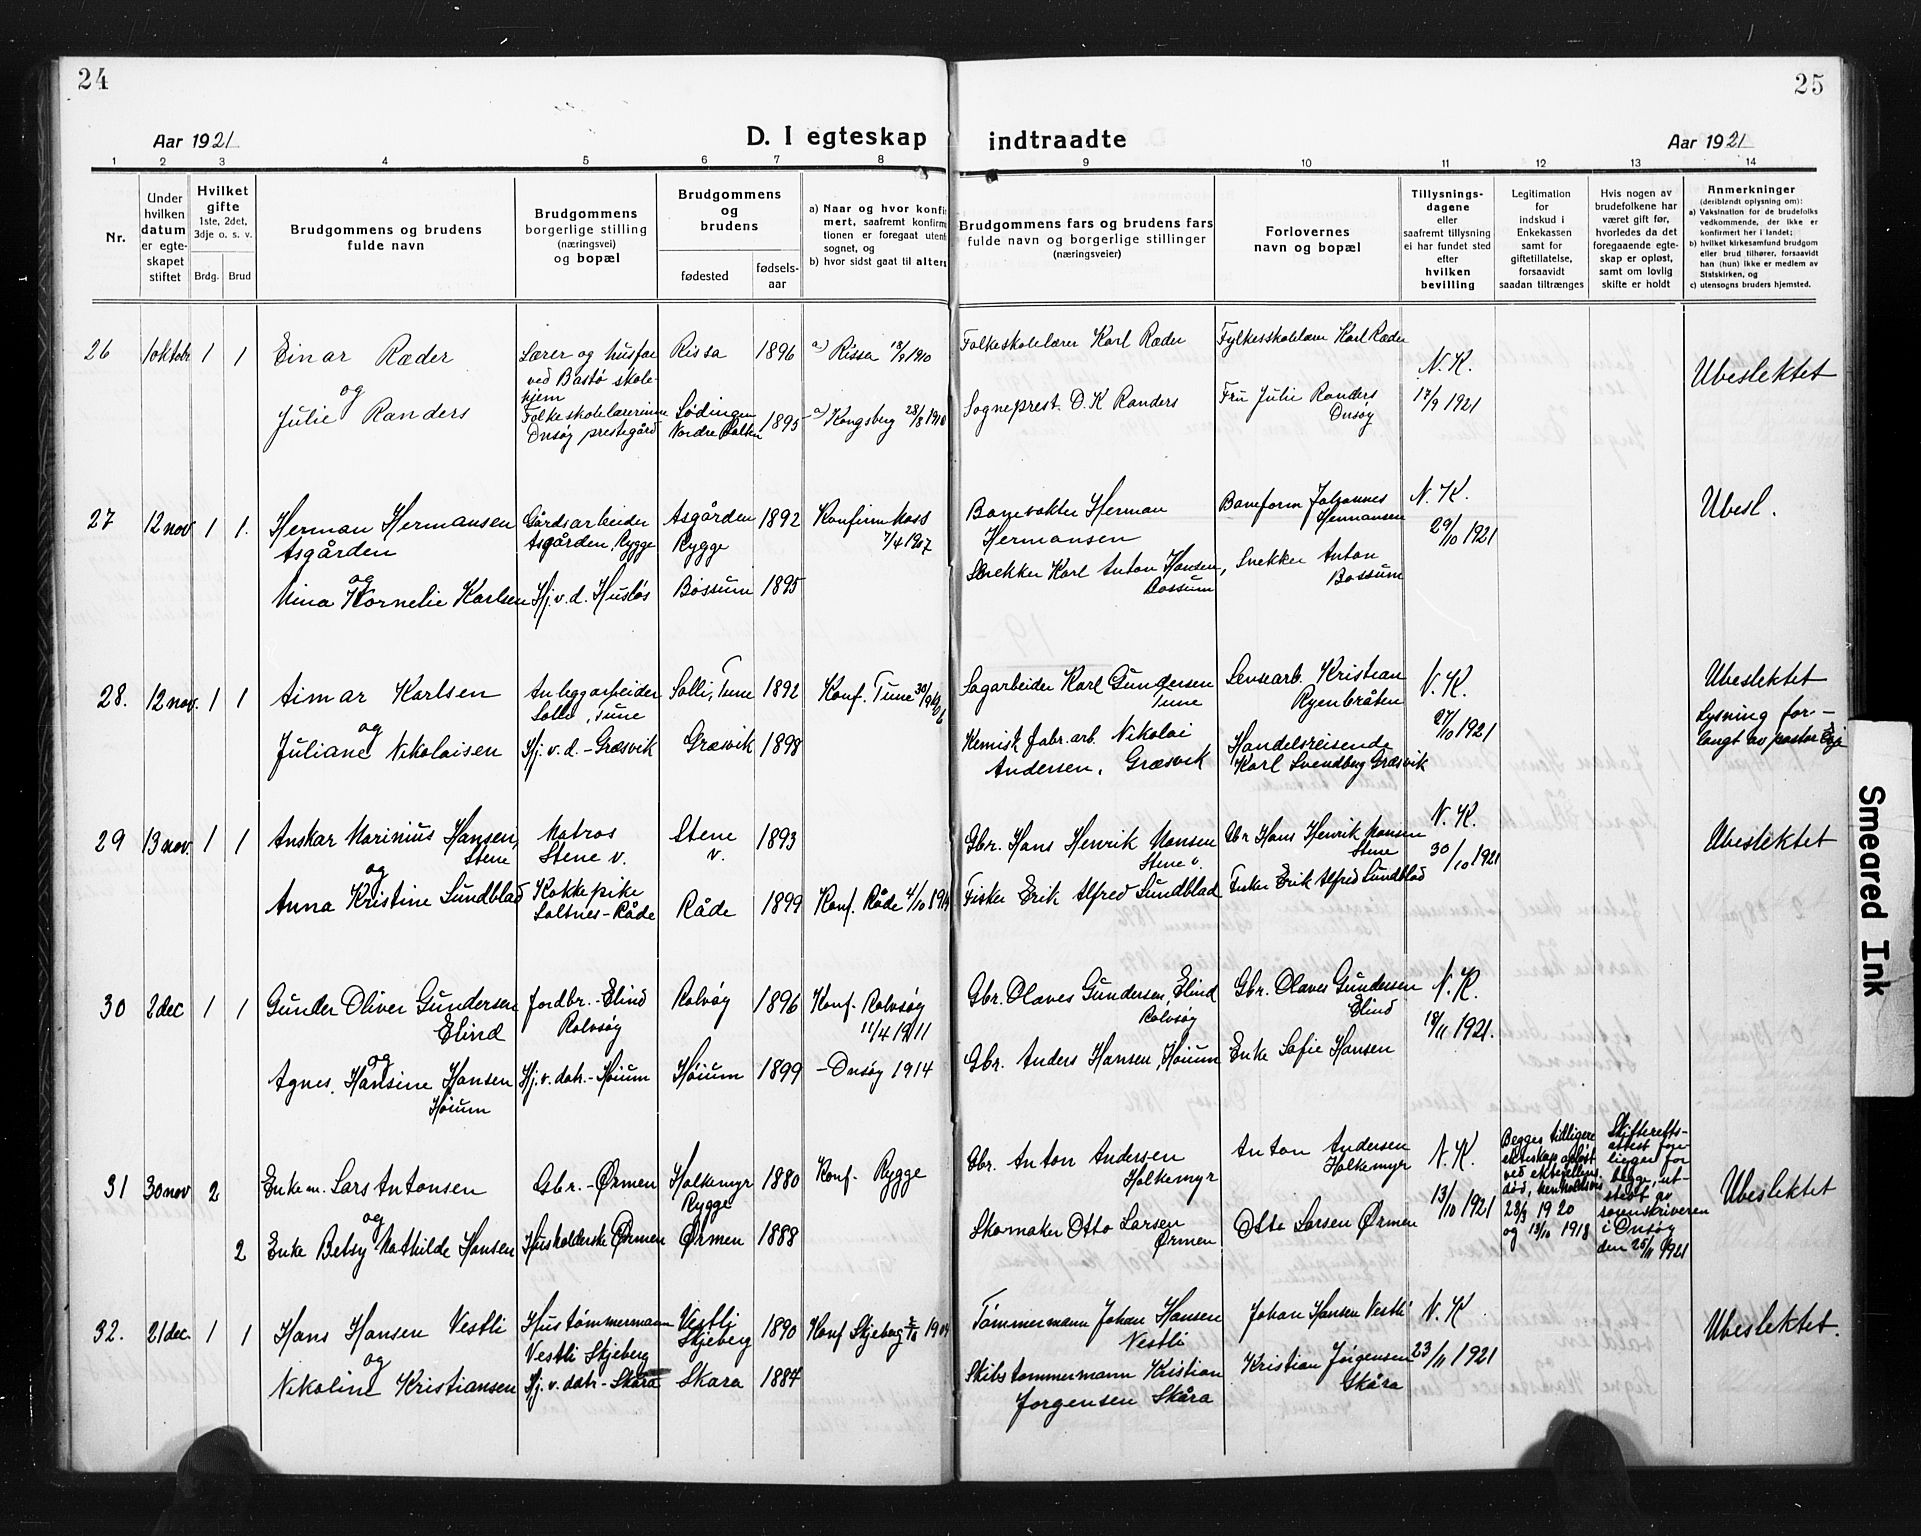 24
25
Aar 1921
D. I egteskap
indtraadte
Aar 1921
1 2 3 4 5 6 7 8 9 10 11 12 13 14
Nr.
Under hvilken datum er egteskapet stiftet
Hvilket gifte 1ste, 2det, 3dje o. s. v.
Brdg. Brud
Brudgommens og brudens fulde navn
Brudgommens borgerlige stilling (næringsvei) og bopæl
Brudgommens og brudens
fødested
fødsels-aar
a) Naar og hvor konfirmert, saafremt konfirmationen er foregaat utenfor sognet, og
b) hvor sidst gaat til alters
Brudgommens fars og brudens fars fulde navn og borgerlige stillinger (næringsveier)
Forlovernes navn og bopæl
Tillysnings-dagene eller saafremt tillysning ei har fundet sted efter hvilken bevilling
Legitimation for indskud i Enkekassen samt for giftetillatelse, forsaavidt saadan tiltrænges
Hvis nogen av brudefolkene har været gift før, hvorledes da det foregaaende egteskap er opløst, samt om lovlig skifte er holdt
Anmerkninger (deriblandt oplysning om):
a) Vaksination for de brudefolks vedkommende, der ikke er konfirmert her i landet;
b) hvilket kirkesamfund brudgom eller brud tilhører, forsaavidt han (hun) ikke er medlem av Statskirken, og
c) utensogns bruders hjemsted.
26 1 oktobr 1 1 Einar Ræder
og
Julie Randers
Lærer og husfar
ved Bastø skole-
hjem
Folkeskolelærerinne
Onsøy prestegård
Rissa 1896
Lødingen
Nordre Salten 1895
a) Rissa 18/9 1910
a) Kongsberg 28/8 1910
Folkeskolelærer Karl Ræder
Sogneprest O. K Randers
Fylkesskolelærer Karl Ræder
Fru Julie Randers
Onsøy
N. K.
17/9 1921
Ubeslektet
27 12 nov 1 1. Herman Hermansen
Asgården
og
Mina Kornelie Karlsen
Gårdsarbeider
Asgården, Rygge
Hj. v. d. Husløs
Asgården 1892
Rygge
Bossum 1895
Konfirm Moss
7/4 1907
Banevokter Herman
Hermansen
Snekker Karl Anton Hansen,
Bossum
Baneform Johannes
Hermansen
Snekker Anton
Bossum
N. K.
29/10 1921
Ubesl.
28. 12 nov. 1 1 Aimar Karlsen
og
Juliane Nikolaisen
Anleggarbeider
Solli, Tune
Hj. v. d. - Græsvik
Solli, Tune 1892
Græsvik 1898
Konf. Tune 30/9 1906
Sagarbeider Karl Gundersen
Tune
Kemisk fabr. arb. Nikolai
Andersen, Græsvik
Lensearb. Kristian
Ryenbråten
Handelsreisende
Karl Svendberg Græsvik
N. K.
27/10 1921
Ubeslektet
Lysning for-
langt av pastor
29 13 nov. 1 1 Anskar Marinius Hansen,
Stene
og
Anna Kristine Sundblad
Matros
Stene v.
Kokkepike
Saltnes - Råde
Stene
v. 1893
Råde 1899
Konf. Råde 4/10 1914
Gbr. Hans Henrik Hansen
Stene v.
Fisker Erik Alfred Sundblad
Gbr Hans Henrik Hansen
Stene
Fisker Erik Alfred Sundblad
N. K.
30/10 1921
Ubeslektet
30 2 dec 1 1 Gunder Oliver Gundersen
Elind
og
Agnes. Hansine Hansen
Høium
Jordbr. - Elind
Rolvsøy
Hj. v. datr. - Høium
Rolvsøy 1896
Høium 1899
Konf. Rolvsøy
11/4 1911
- Onsøy 1914
Gbr. Olaves Gundersen, Elind
Rolvsøy
Gbr. Anders Hansen, Høium
Gbr. Olaves Gundersen
Elind
Enke Sofie Hansen
N. K.
18/11 1921.
31 30 nov 2 Enkem. Lars Antonsen
og
2 Enke Betsy Mathilde Hansen
Gbr. - Ørmen
Husholderske Ørmen
Holkemyr 1880
Rygge
Ørmen 1888
Konf. Rygge
Gbr. Anton Andersen
Holkemyr
Skomaker Otto Larsen
Ørmen
Anton Andersen
Holkemyr
Otto Larsen Ørmen
N. K.
13/10 1921
Begges tidligere
ekteskap opløst
ved ektefellens
død, henholdsvis
28/3 1920
og 13/10 1918
Skifteretts-
attest fore-
ligger for
begge, ut-
stedt av
sorenskriveren
i Onsøy
den 25/11 1921
Ubeslektet
32. 21 dec. 1 1 Hans Hansen Vestli
og
Nikoline Kristiansen
Hustømmermann
Vestli Skjeberg
Hj. v. datr - Skåra
Vestli
Skjeberg 1890
Skara 1884
Konf Skjeberg 2/10 1904
Tømmermann Johan Hansen
Vestli
Skibstømmermann Kristian
Jørgensen Skåra
Johan Hansen Vestli
Kristian Jørgensen
Skåra
N. K.
23/11 1921
Ubeslektet.
Smeared Ink